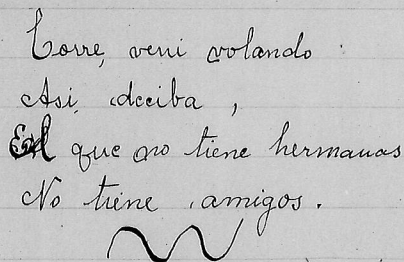 Corre, veni volando
Asi, deciba,
El que no tiene hermanas
No tiene amigos.